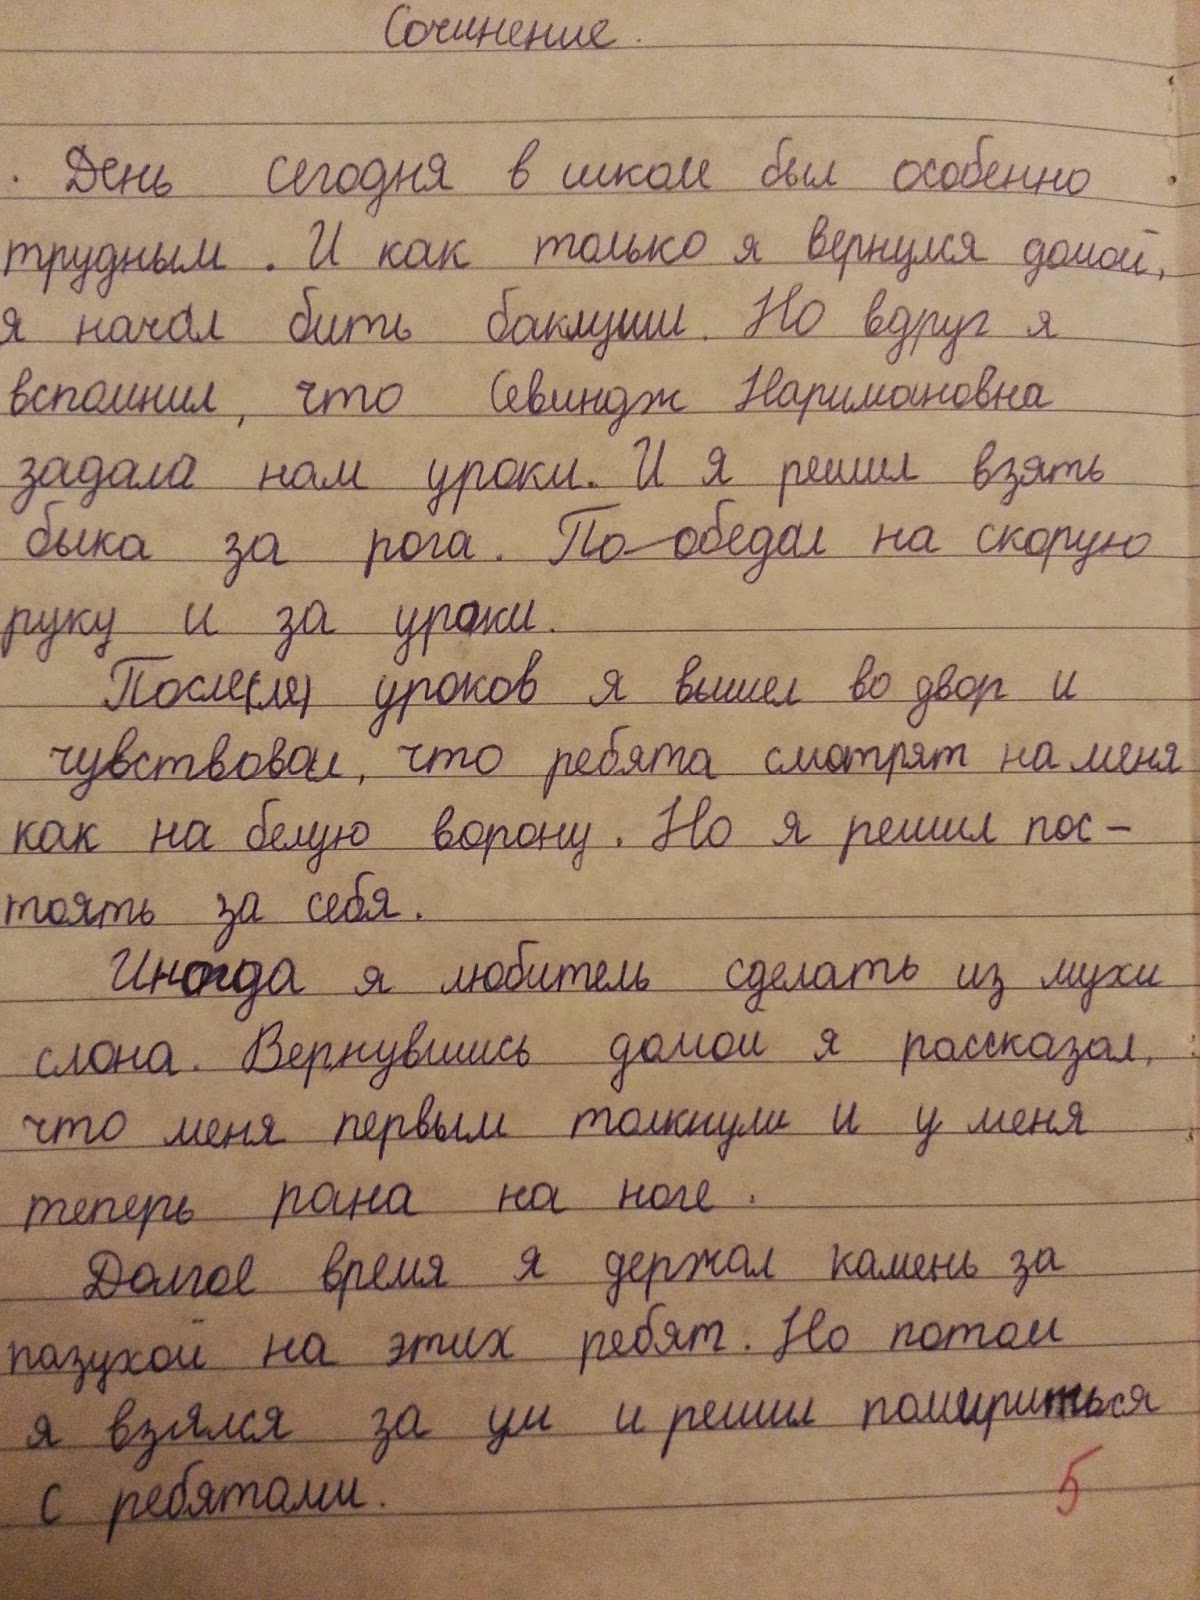 Сочинение.
День сегодня в школе был особенно
трудным. И как только я вернулся домой,
я начал бить баклуши. Но вдруг я
вспомнил, что Севиндж Наримановна
задала нам уроки. И я решил взять
быка за рога. По обедал на скорую
руку и за уроки.
После(ля) уроков я вышел во двор и
чувствовал, что ребята смотрят на меня
как на белую ворону. Но я решил пос-
тоять за себя.
Иногда я любитель сделать из мухи
слона. Вернувшись домой я рассказал,
что меня первым толкнули и у меня
теперь рана на ноге.
Долгое время я держал камень за
пазухой на этих ребят. Но потом
я взялся за ум и решил помириться
с ребятами.
5